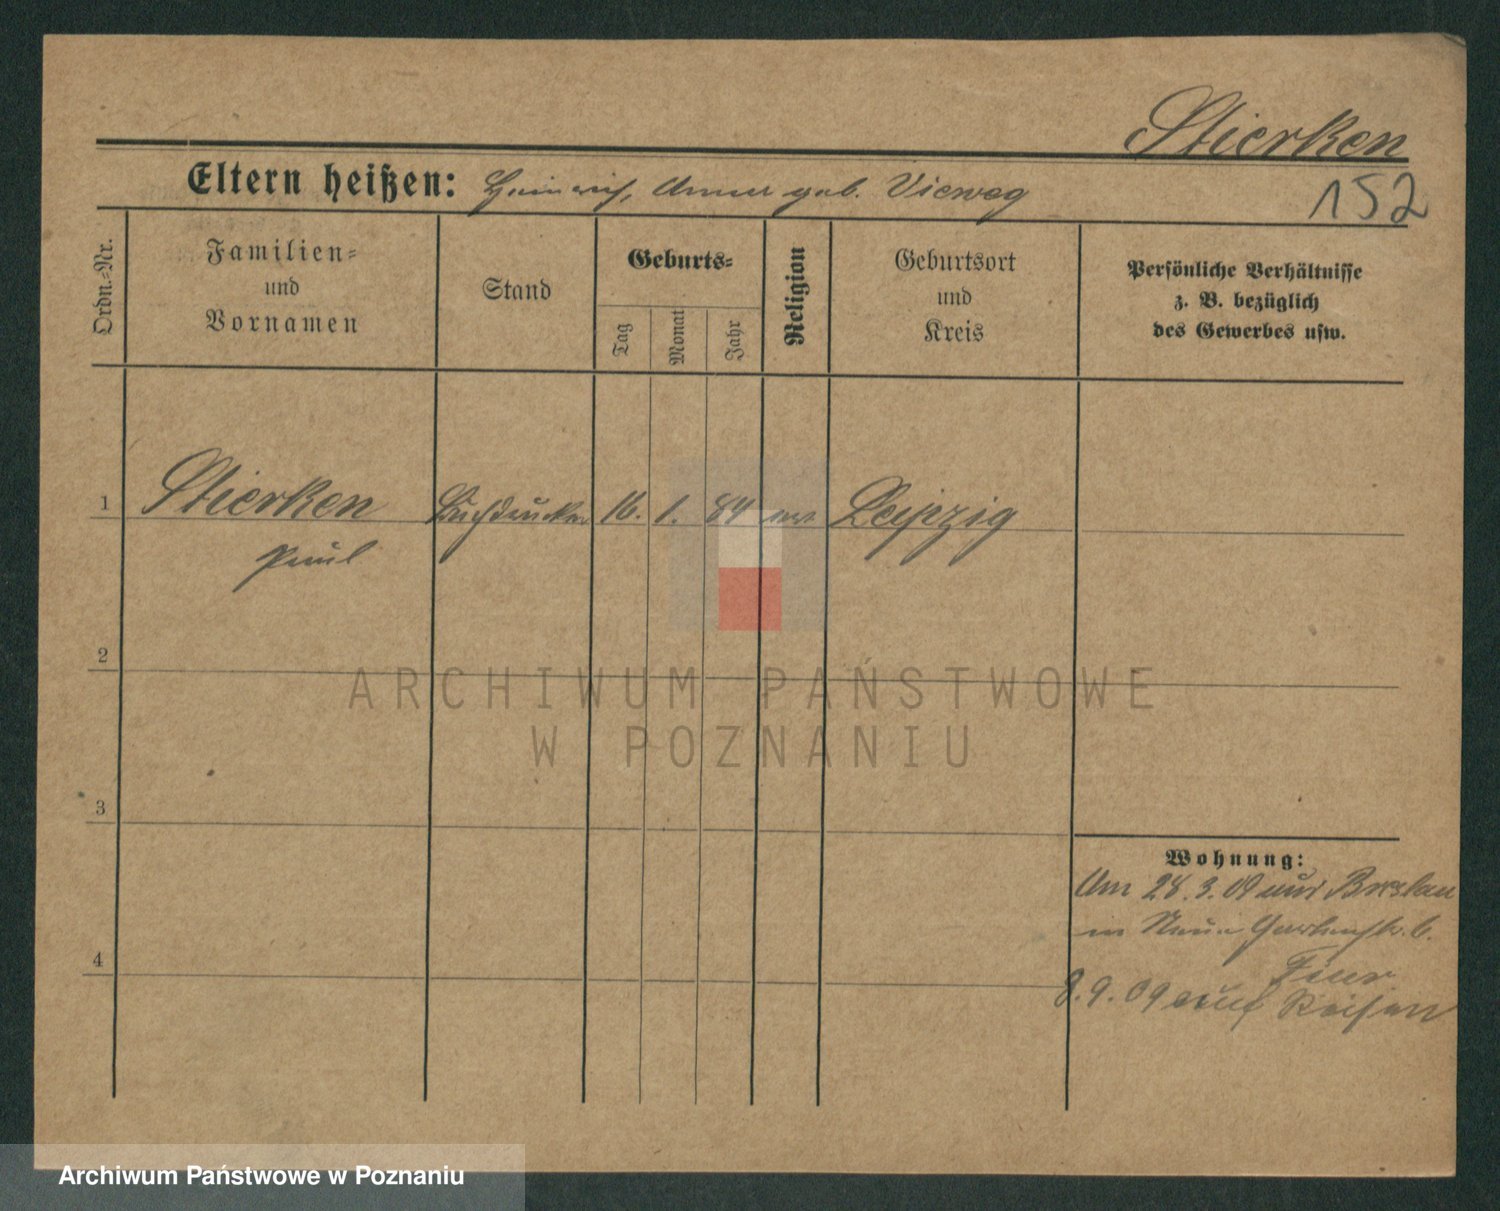 Stierken
Eltern heißen: Heinrich, Anna geb. Vieweg
152
Ordn.-Nr.
Familien-
und
Vornamen
Stand
Geburts-
Tag
Monat
Jahr
Religion
Geburtsort
und
Kreis
Persönliche Verhältnisse
z. B. bezüglich
des Gewerbes usw.
1
Stierken
Buchdrucker
16.
1.
84
Leipzig
Paul
2
ARCHIWUM PAŃSTWOWE
W POZNANIU
3
Wohnung:
Am 28.3.09 aus Breslau
in Gartenstr. 6.
4
8.9.09 auf Reisen
Archiwum Państwowe w Poznaniu